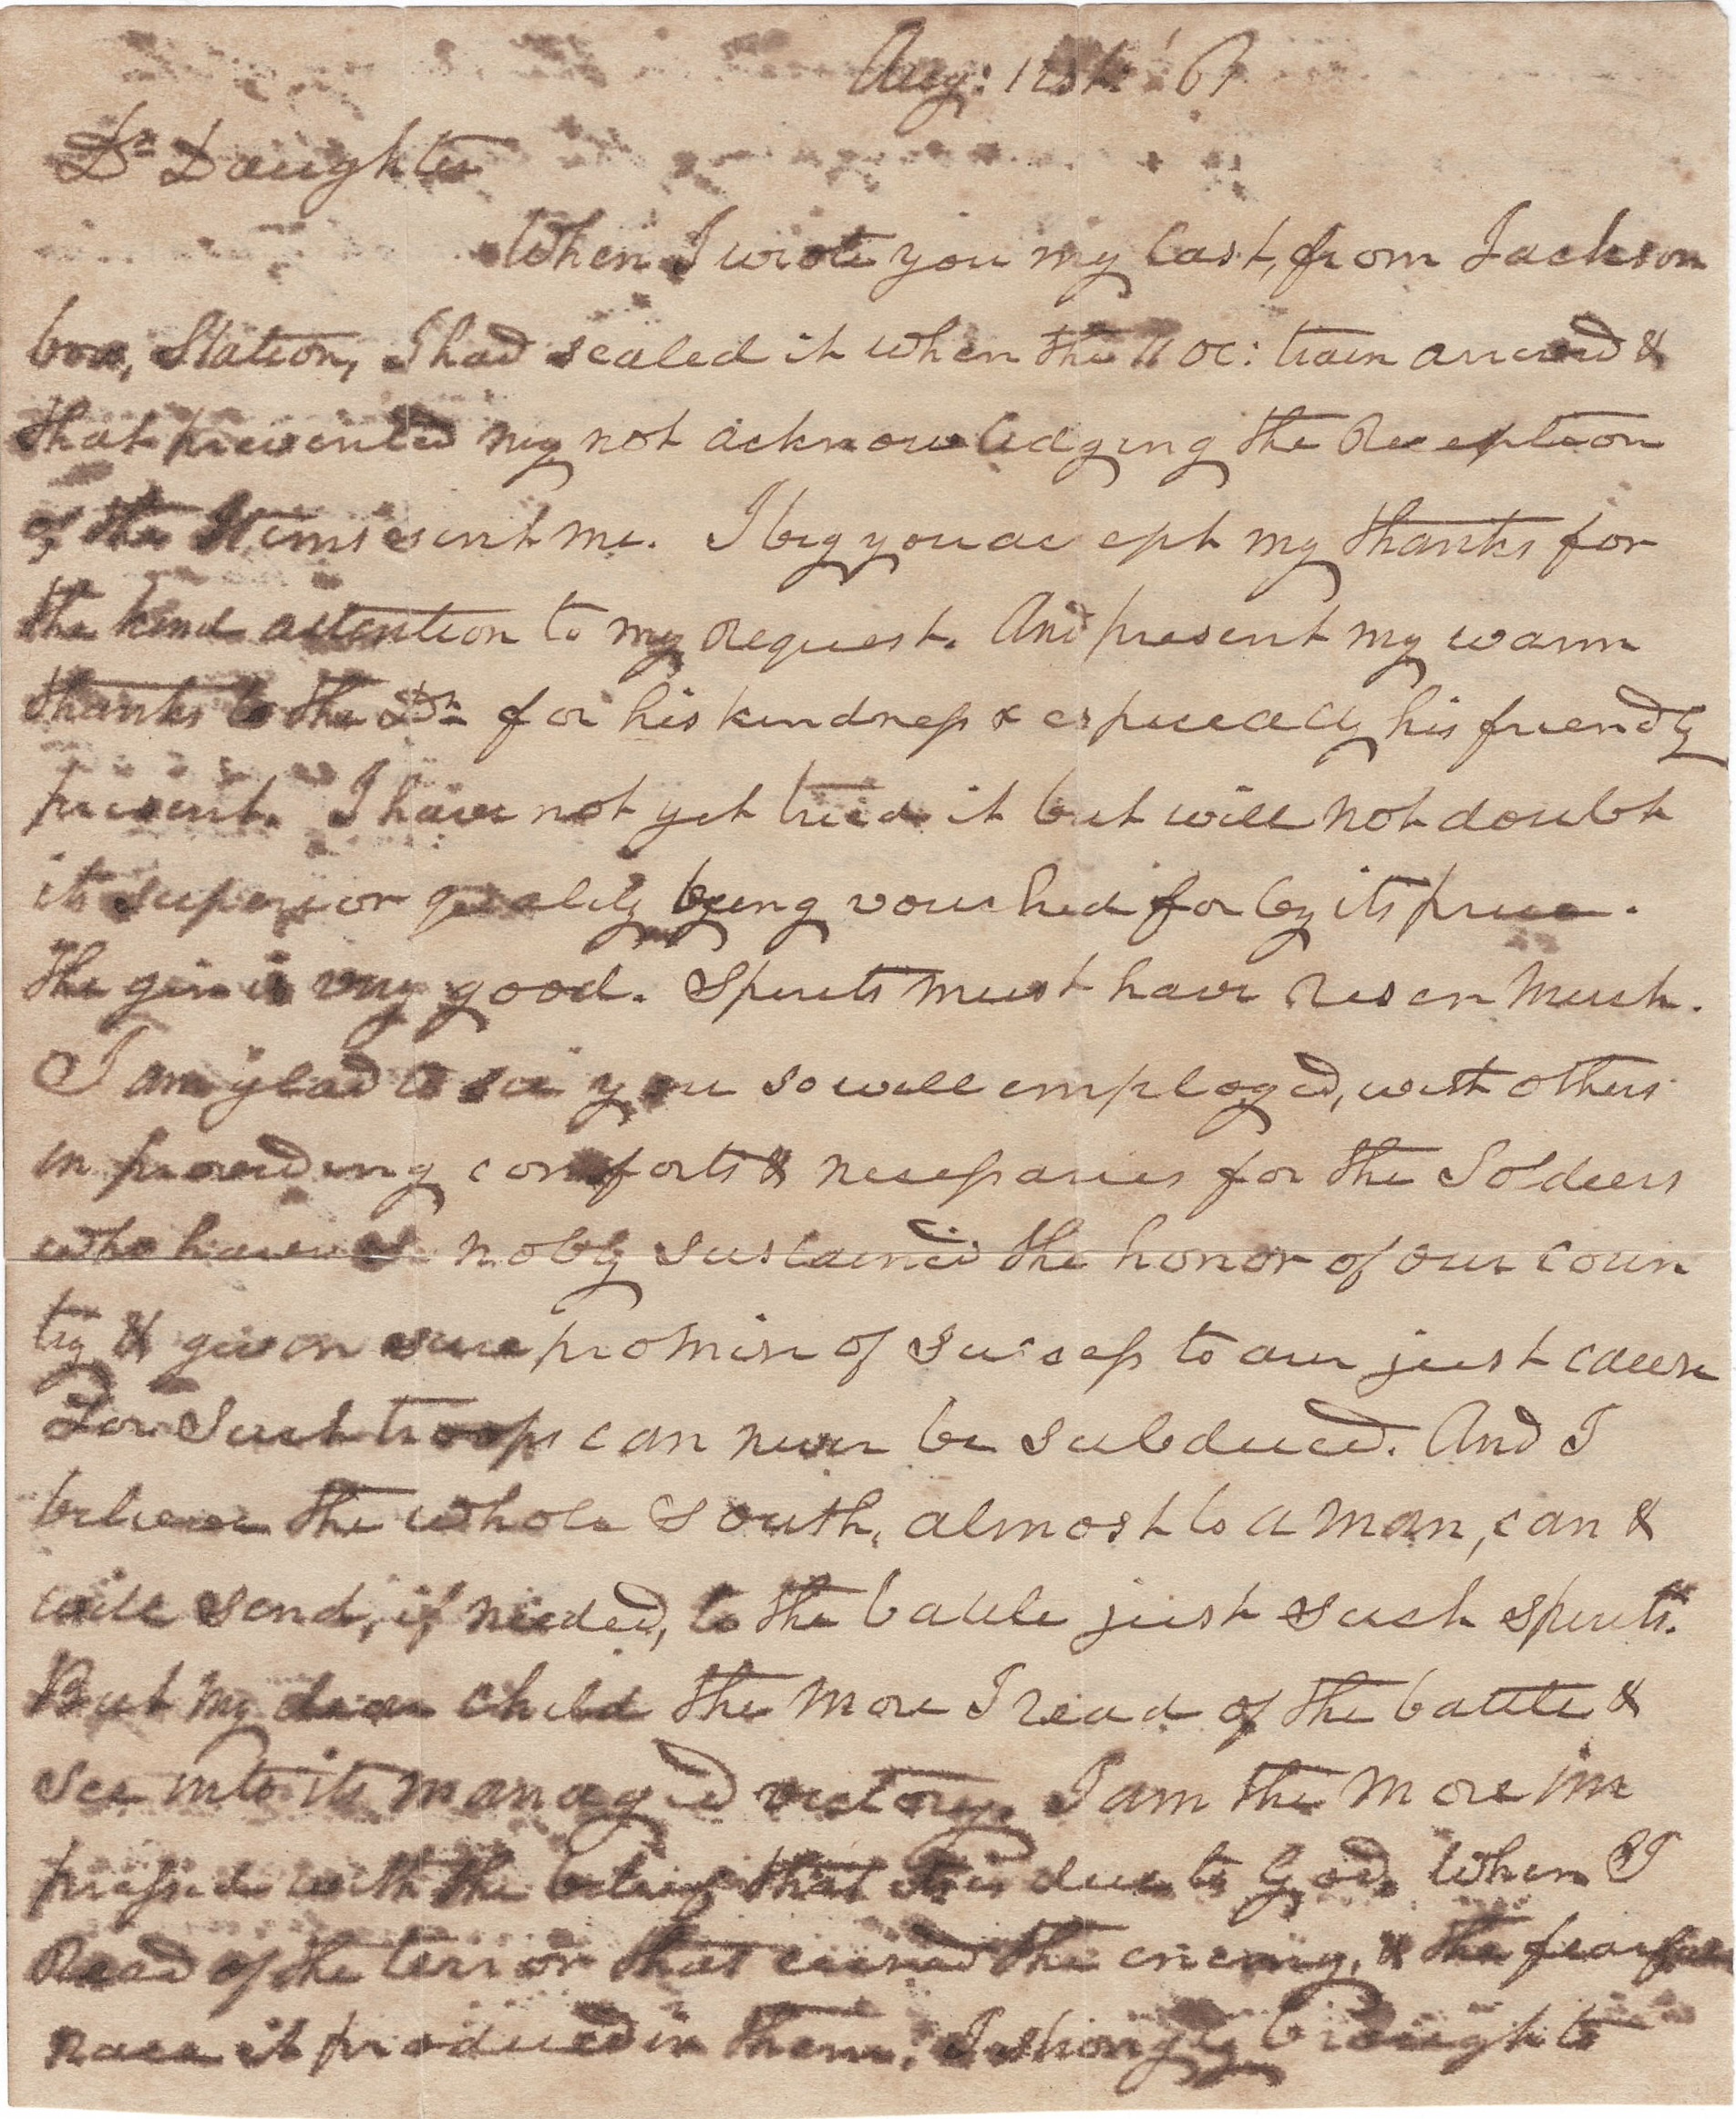 Aug: 12th '61
Dr Daughter
When I wrote you my last, from Jackson
boro, Station, I had sealed it when the 11 oc: train arrived &
that prevented my not acknowledging the Reception
of the Items sent me. I beg you accept my thanks for
the kind attention to my Request. And present my warm
thanks to the Dr for his kindness & especially his friendly
present. I have not yet tried it but will not doubt
its superior quality being vouched for by its price.
The gin is very good. Spirits must have Risen much.
I am glad to see you so well employed, with others
in providing comforts & necessaries for the Soldiers
who have so nobly sustained the honor of our coun
try & given sure promise of success to our just cause
For Such troops can never be subdued. And I
believe the whole South, almost to a man, can &
will send, if needed, to the battle just such spirits.
But my dear child the more I read of the battle &
see into its managed victory. I am the more im
pressed with the belief that it is due to God. When I
Read of the terror that seized the enemy, & the fearful
race it produced in them, I strongly brought to